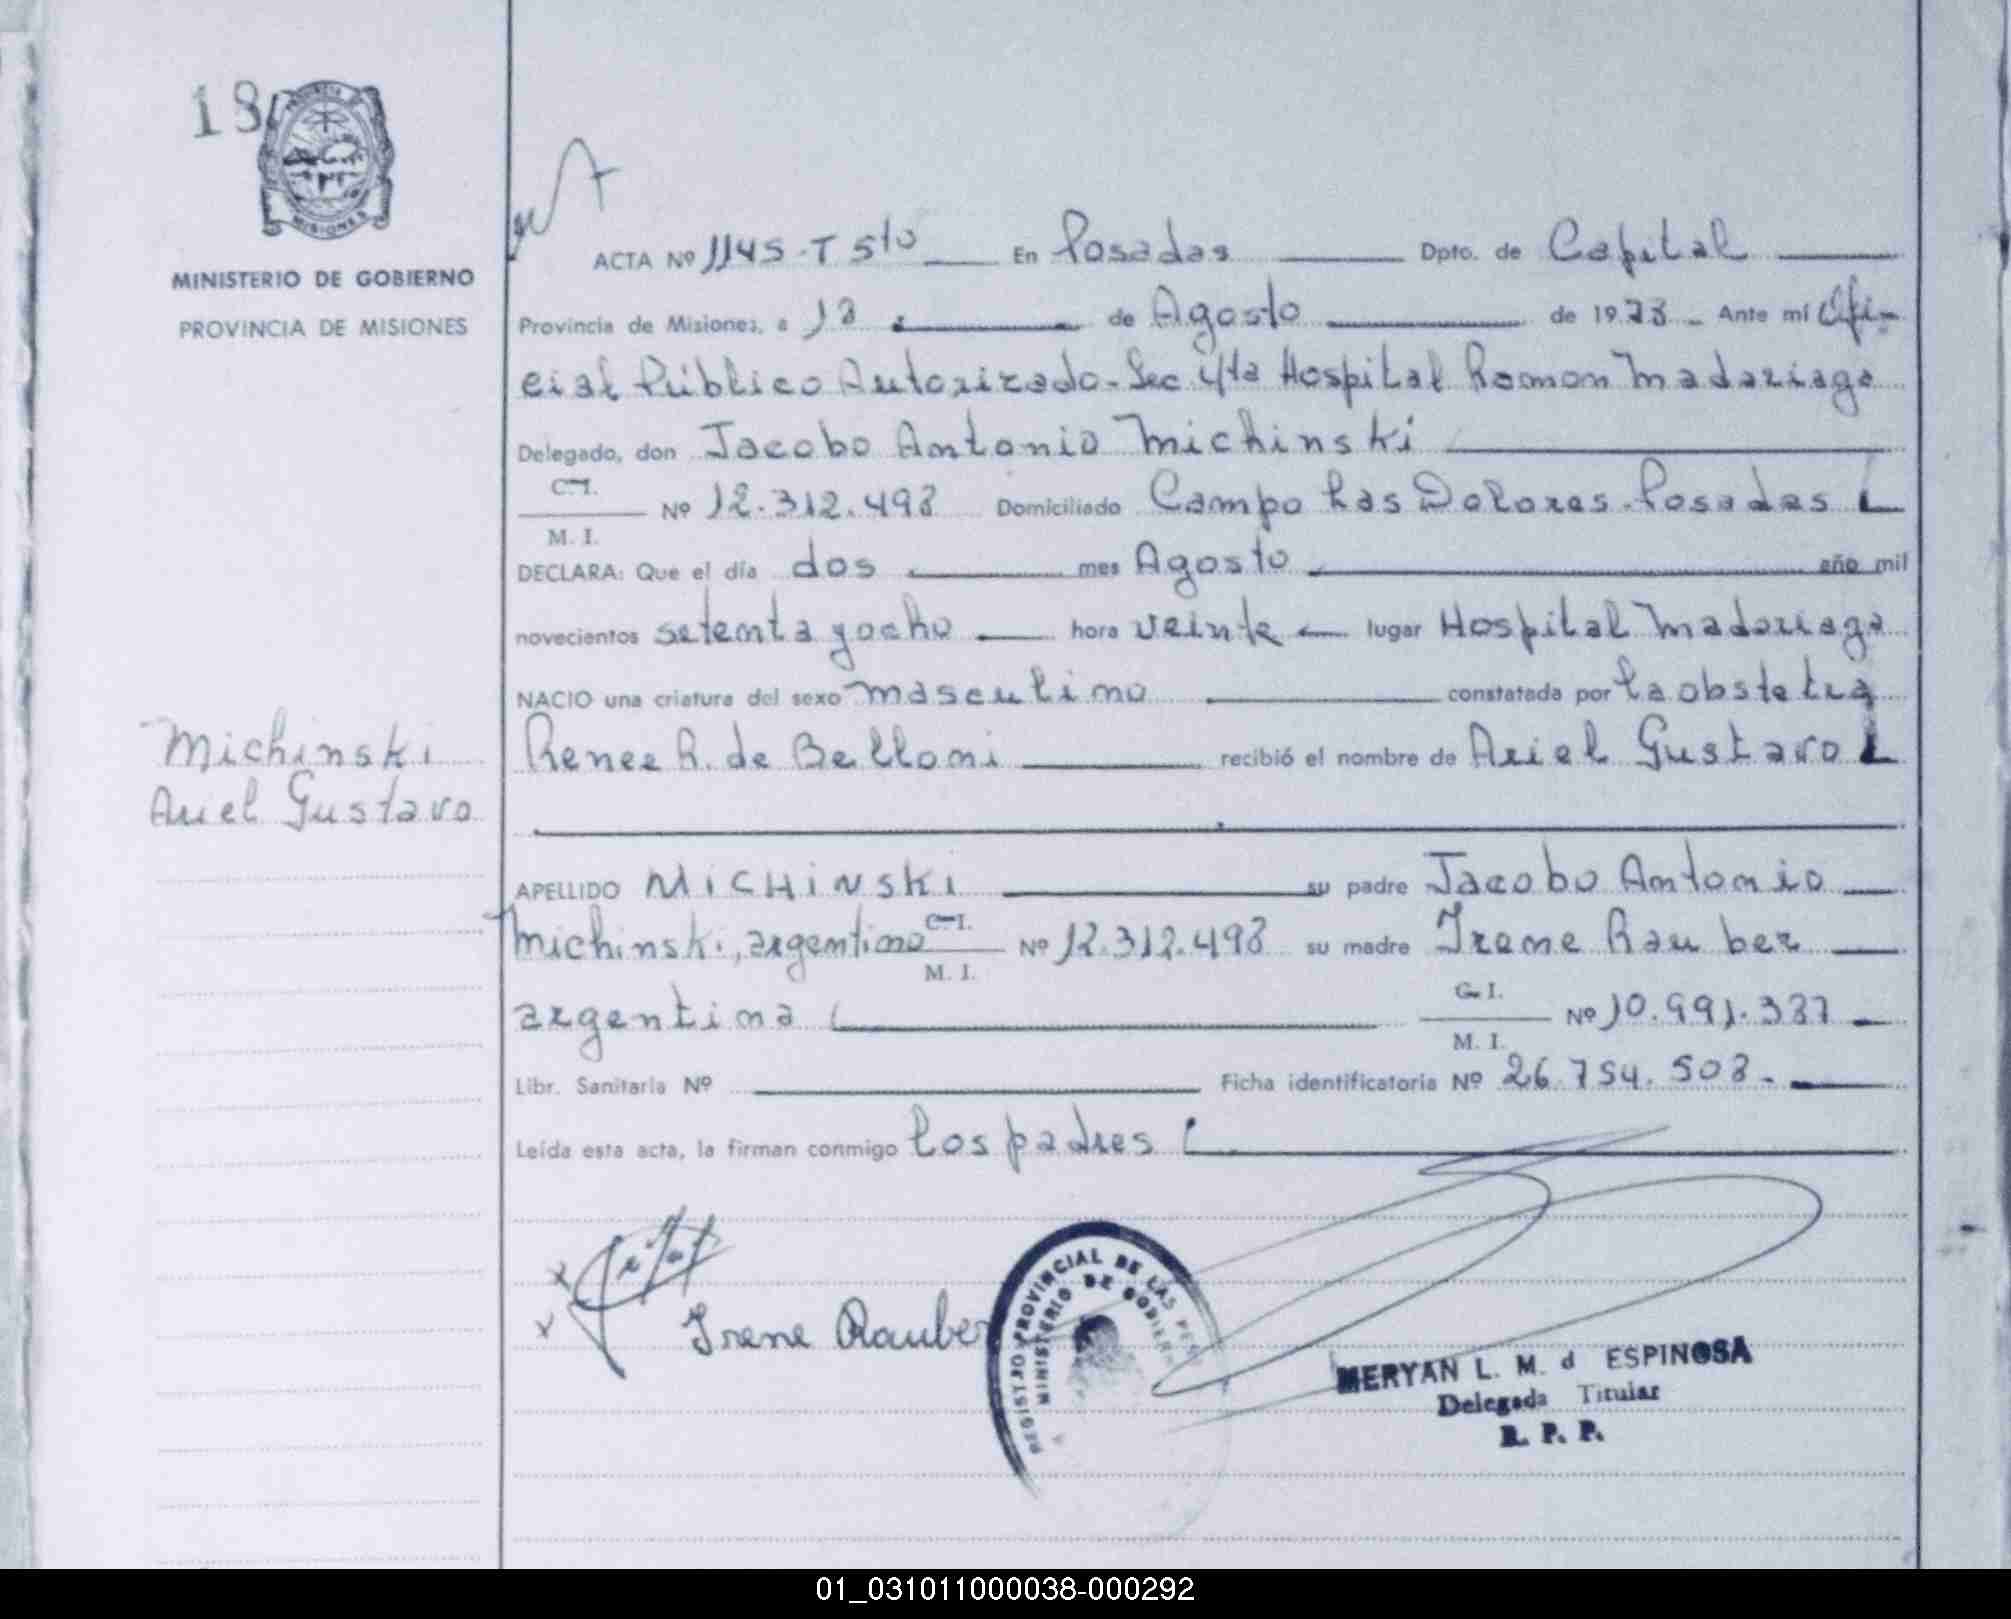 18
PROVINCIA DE
MISIONES
MINISTERIO DE GOBIERNO
PROVINCIA DE MISIONES
ACTA Nº 1145-T 5to En Posadas Dpto. de Capital
Provincia de Misiones, a 18 de Agosto de 1978 Ante mí Ofi-
cial Público Autorizado-Sec 4ta Hospital Ramon Madariaga
Delegado, don Jacobo Antonio Michinski
C.I.
Nº 12.312.498 Domiciliado Campo Las Dolores-Posadas
M. I.
DECLARA: Que el día dos mes Agosto año mil
novecientos setenta y ocho hora veinte lugar Hospital Madariaga
NACIO una criatura del sexo masculino constatada por la obstetra
Michinski Renee R. de Belloni recibió el nombre de Ariel Gustavo
Ariel Gustavo
APELLIDO MICHINSKI su padre Jacobo Antonio
Michinski, argentino C.I. Nº 12.312.498 su madre Irene Rauber
M. I.
argentina C.I. Nº 10.991.387
M. I.
Libr. Sanitaria Nº Ficha identificatoria Nº 26.754.508.-
Leída esta acta, la firman conmigo los padres
Irene Rauber
REGISTRO PROVINCIAL DE LAS PERS
MINISTERIO DE GOBIERN
MERYAN L. M. d ESPINOSA
Delegada Titular
R. P. P.
01_031011000038-000292